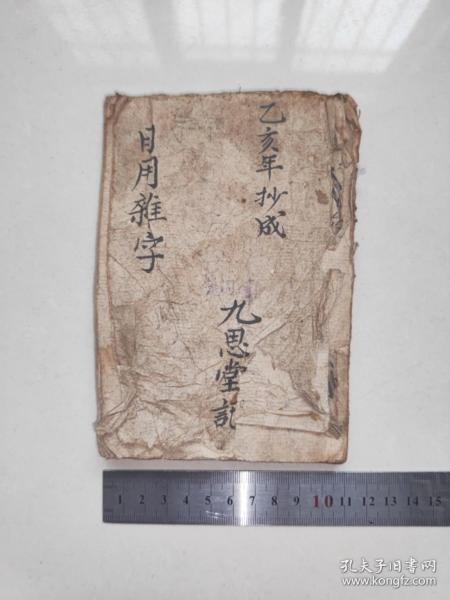 乙亥年抄成
日用雜字
九思堂記
1 2 3 4 5 6 7 8 9 10 11 12 13 14 15
孔夫子旧书网
www.kongfz.com